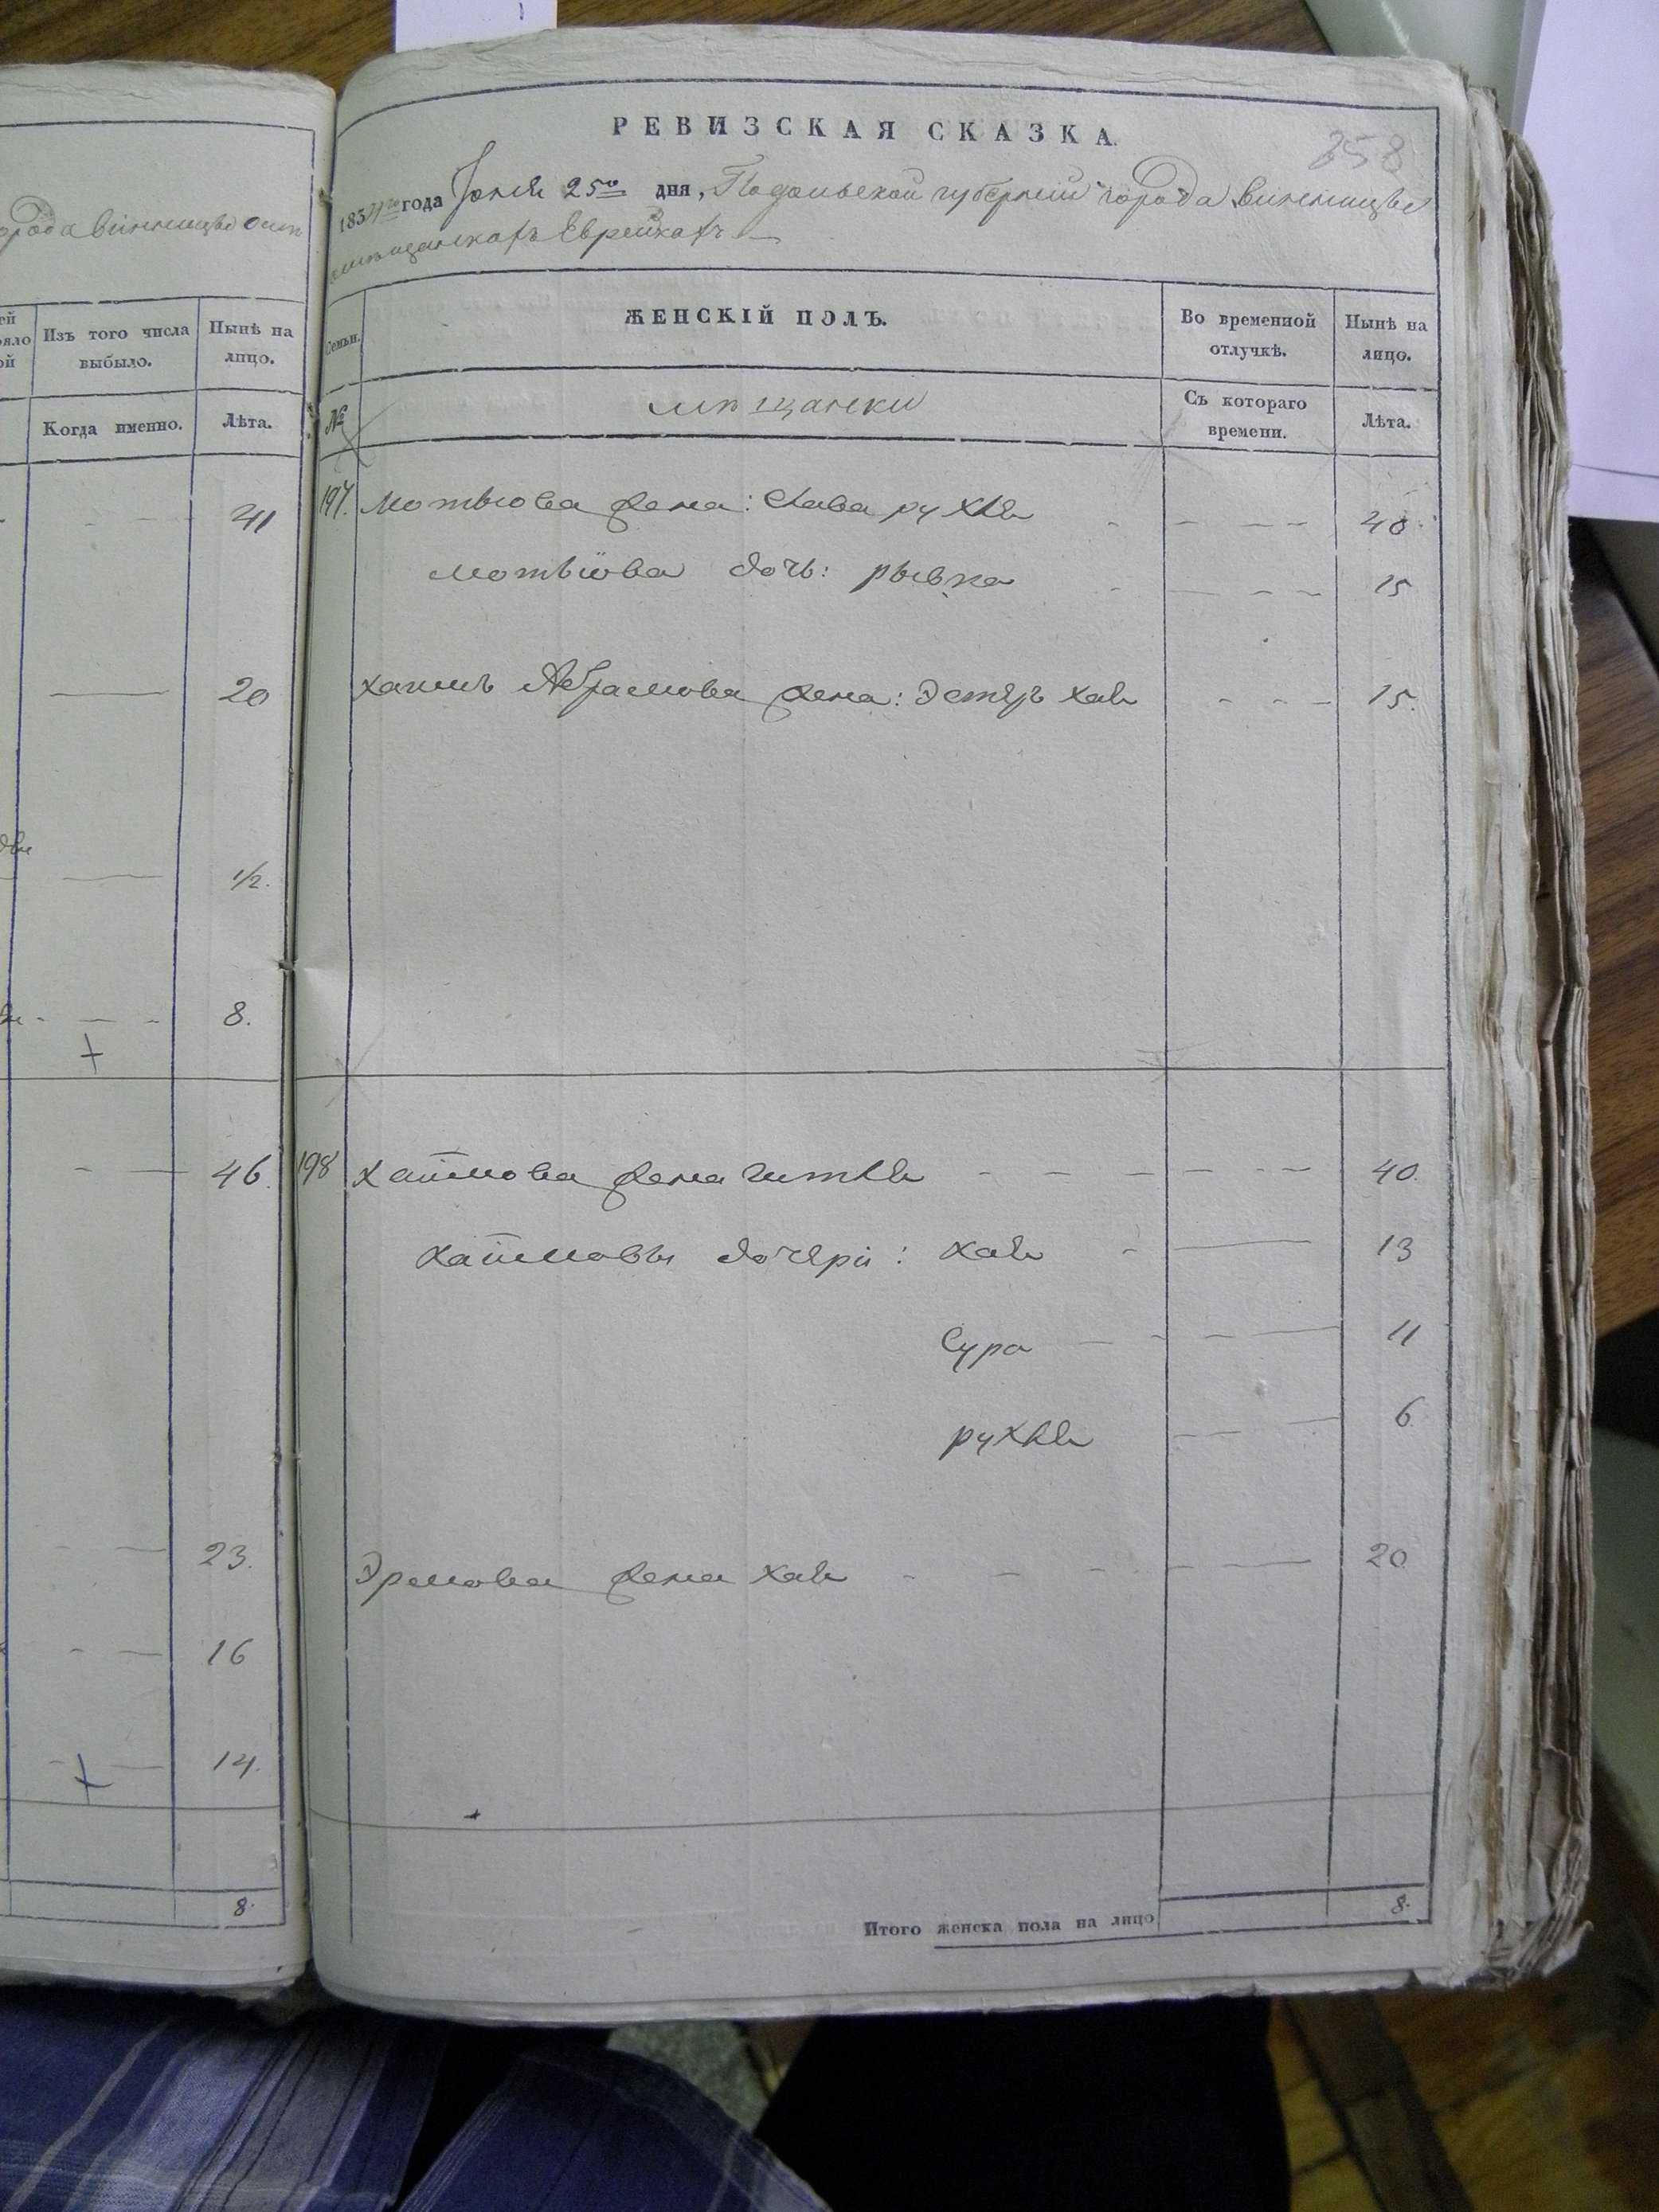 города Винницы о
Изъ того числа выбыло.
Нынѣ на лицо.
Когда именно.
Лѣта.
41
20
1/2.
8.
46.
23.
16
14.
8.
РЕВИЗСКАЯ СКАЗКА.
258
1834го года Іюня 25го дня, Подольской губерніи города Винницы
мѣщанкахъ Еврейкахъ
Семьи.
ЖЕНСКІЙ ПОЛЪ.
Во временной отлучкѣ.
Нынѣ на лицо.
№
мѣщанки
Съ котораго времени.
Лѣта.
197. Мотьюва жена: Хава рухля 40
Мотьюва дочь: рывка 15
хаимъ Абрамова жена: Эстеръ хая 15.
198 Хаимова жена гитля 40.
Хаимовы дочери: хая 13
Сура 11
рухля 6
Эрмова жена хая 20
Итого женска пола на лицо 8.